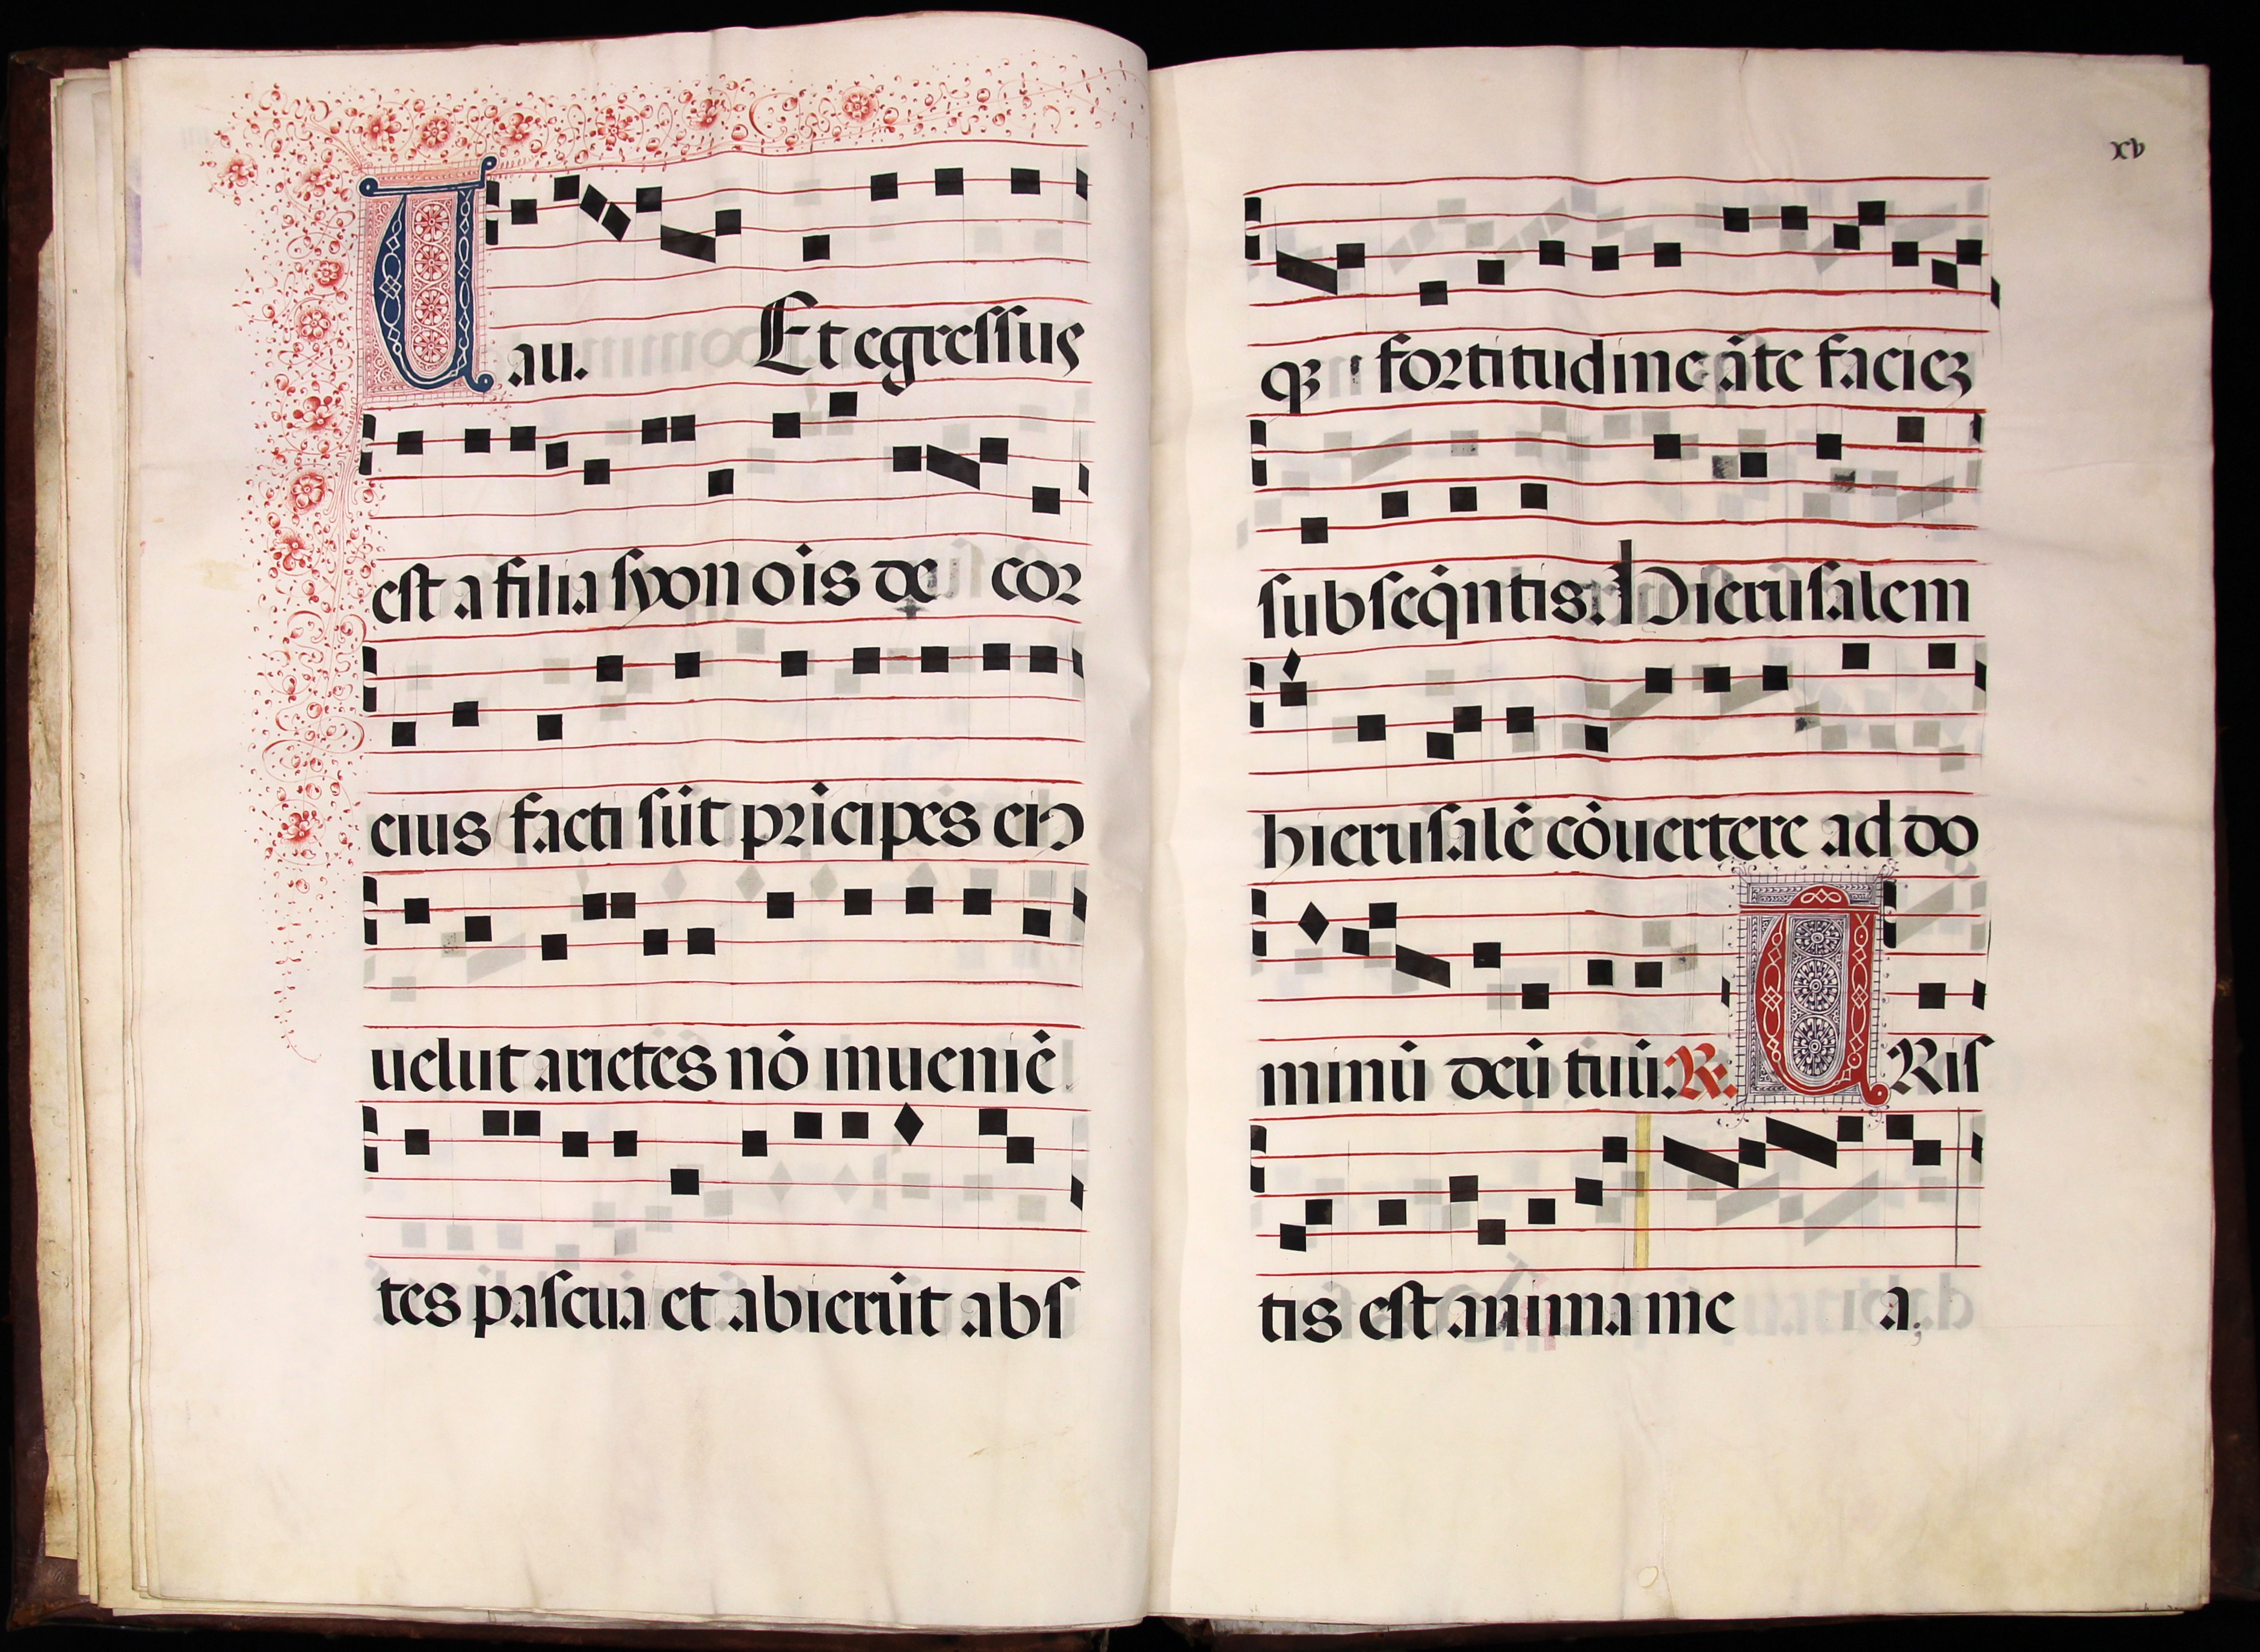 Uau. Et egressus
est a filia syon oīs de cor
eius facti sūt prīcipes eiꝰ
uelut arietes nō inueniē
tes pascua et abierūt abs
xv
qꝫ fortitudine āte facieꝫ
subseq̄ntis. Hierusalem
hierusalē cōuertere ad do
minū deū tuū. R. TRis
tis est anima me a;